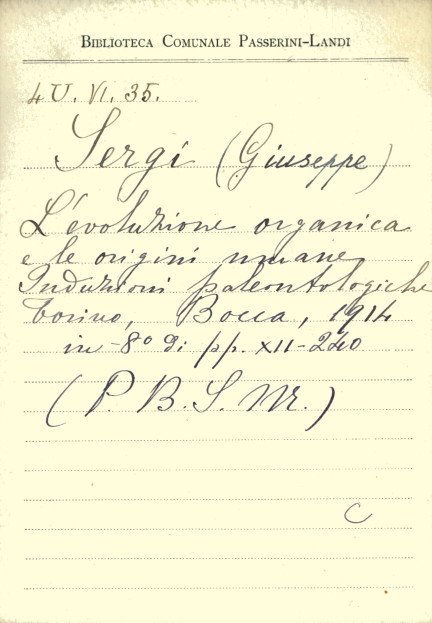 BIBLIOTECA COMUNALE PASSERINI-LANDI
4 U. VI. 35.
Sergi (Giuseppe)
L'evoluzione organica
e le origini umane
Induzioni paleontologiche
Torino, Bocca, 1914
in-8º di pp. XII-240
(P. B. S. Mr.)
C